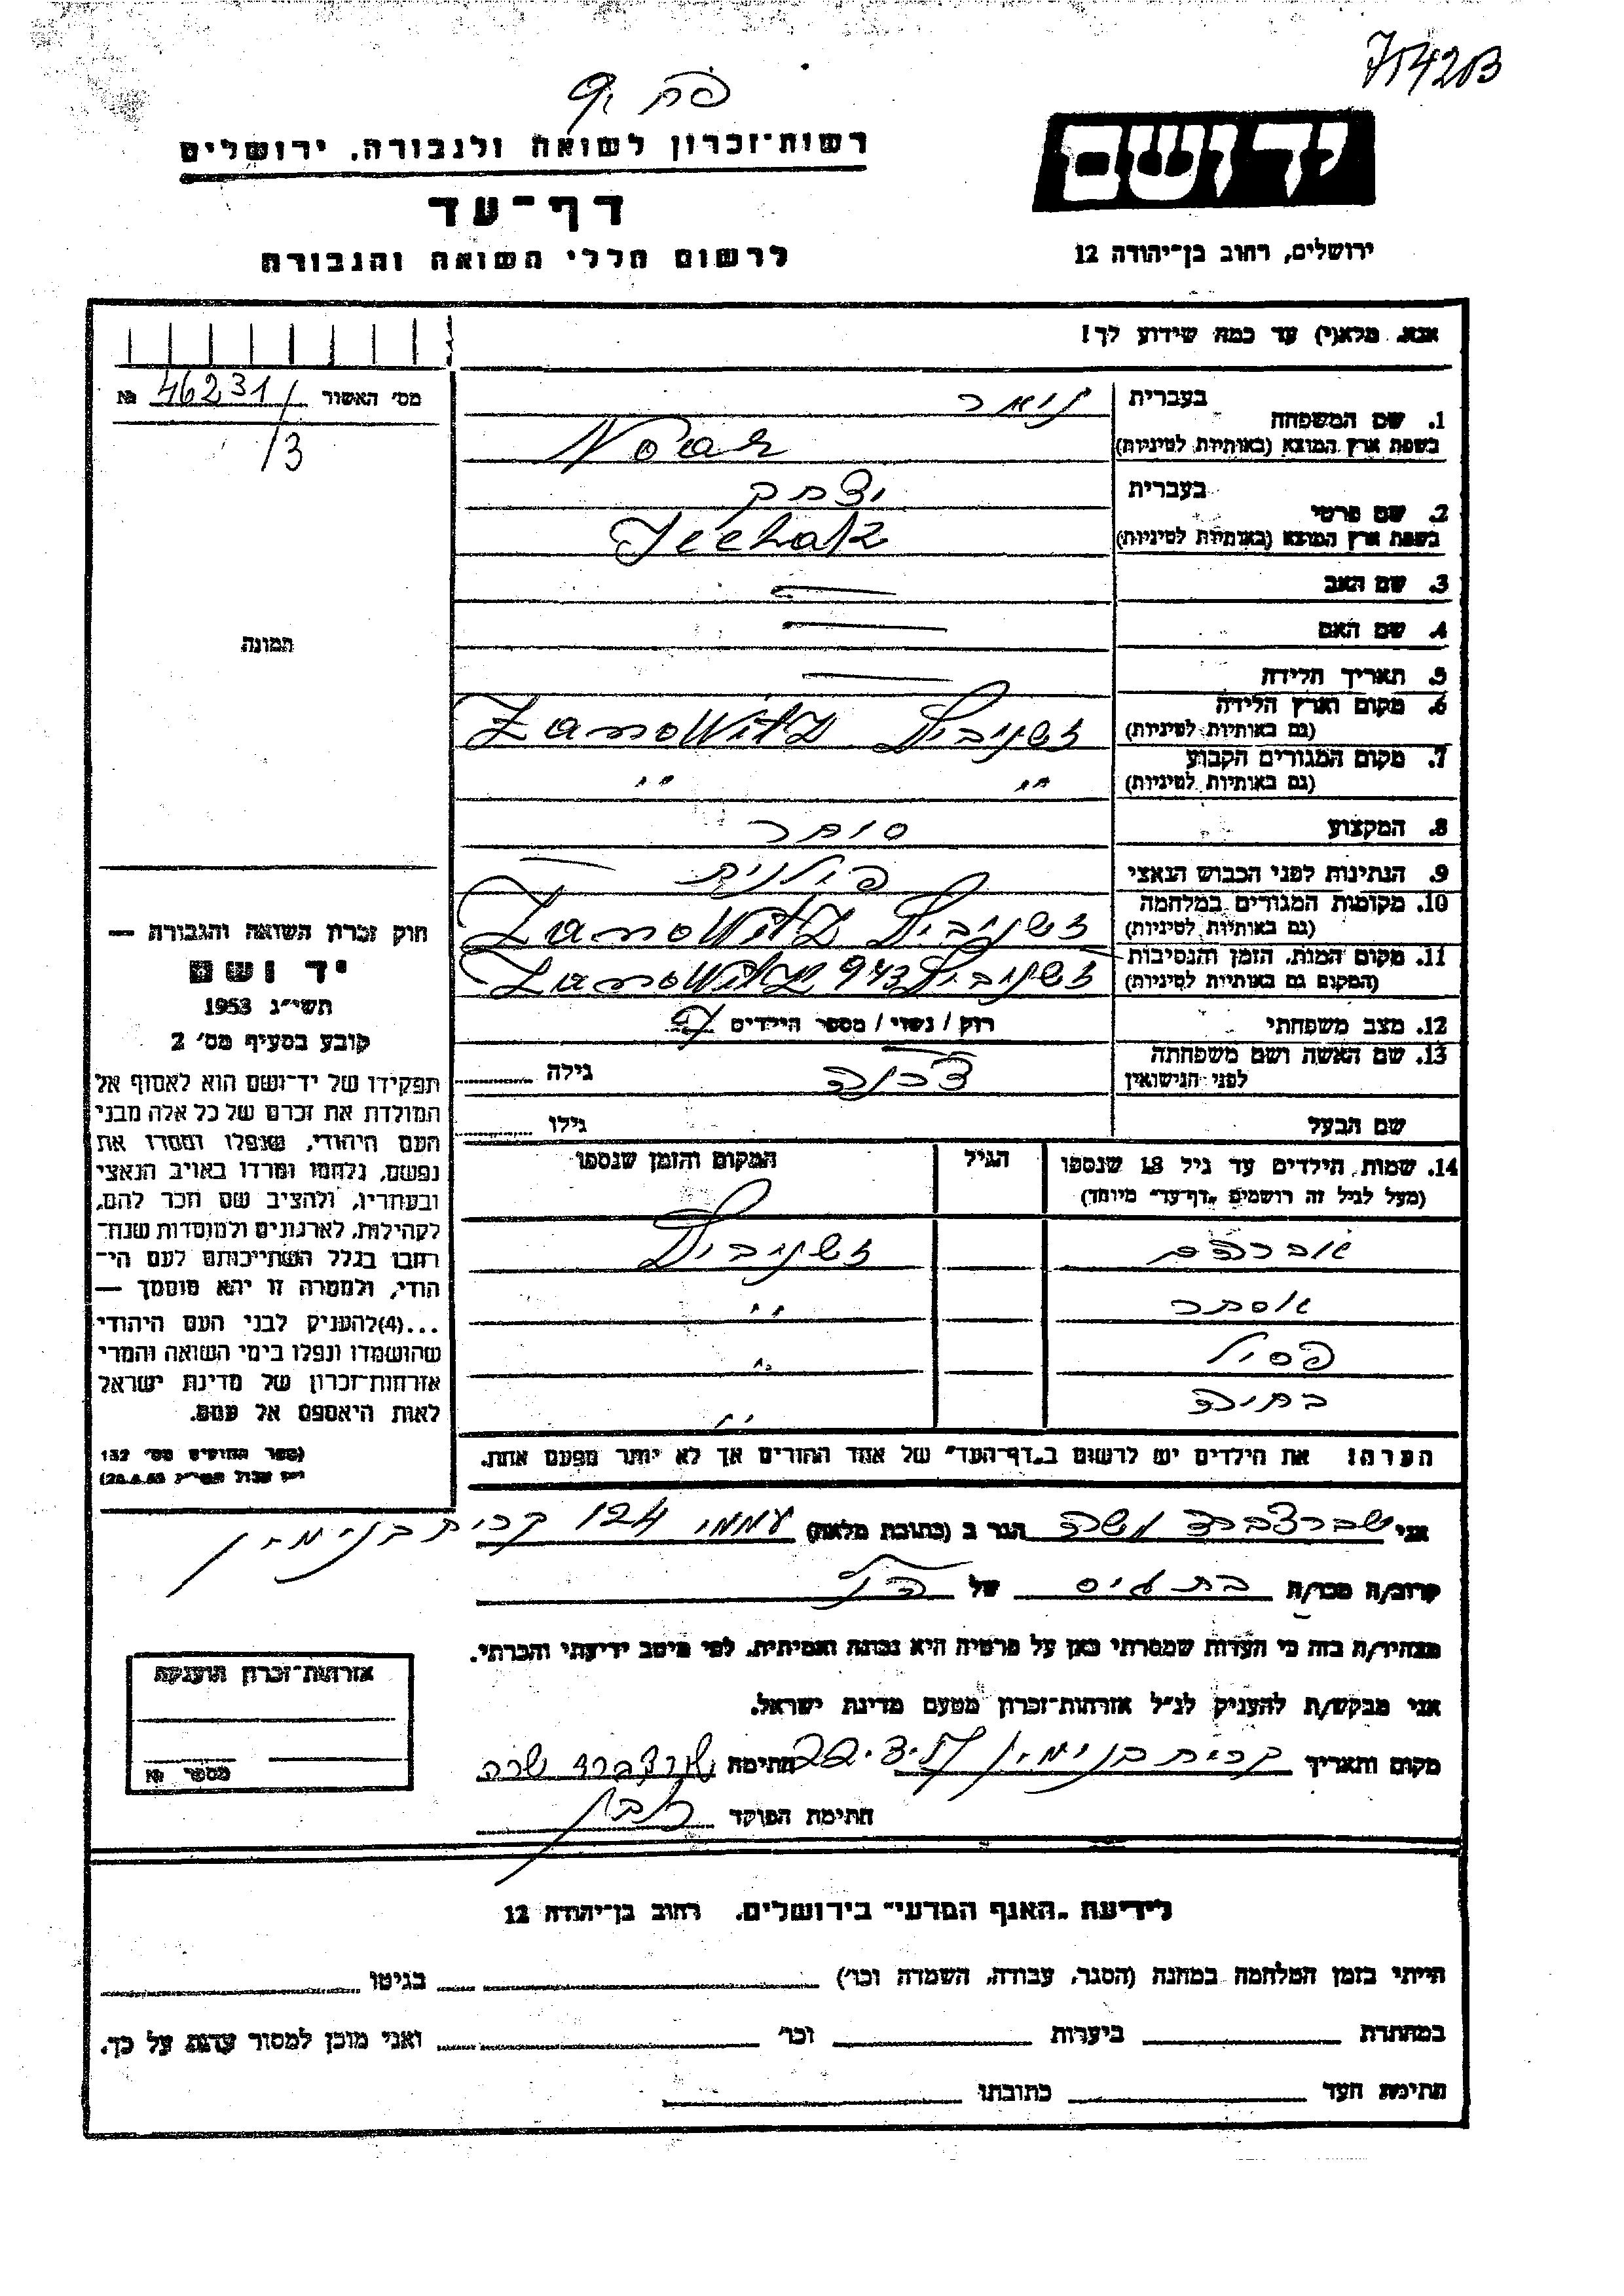 75420B
פח 9'
רשות־זכרון לשואה ולגבורה, ירושלים
יד ושם
דף־עד
לרשום חללי השואה והגבורה
ירושלים, רחוב בן־יהודה 12
אנא, מלא(י) עד כמה שידוע לך!
מס' האשור 46231/ №
/3
תמונה
1. שם המשפחה
בעברית
בשפת ארץ המוצא (באותיות לטיניות) Noear
2. שם פרטי
בעברית יצחק
בשפת ארץ המוצא (באותיות לטיניות) Jeehak
3. שם האב —
4. שם האם —
5. תאריך הלידה —
6. מקום וארץ הלידה
(גם באותיות לטיניות) זשנוביץ ZanoWitz
7. מקום המגורים הקבוע
(גם באותיות לטיניות) " "
8. המקצוע סוחר
9. הנתינות לפני הכבוש הנאצי פולנית
10. מקומות המגורים במלחמה
(גם באותיות לטיניות) זשנוביץ ZanoWitz
11. מקום המות, הזמן והנסיבות
(המקום גם באותיות לטיניות) זשנוביץ 943 ZanoWitz
12. מצב משפחתי רוק / נשוי / מספר הילדים
13. שם האשה ושם משפחתה
לפני הנישואין גילה
שם הבעל גילו
14. שמות הילדים עד גיל 18 שנספו הגיל המקום והזמן שנספו
(מעל לגיל זה רושמים "דף־עד" מיוחד)
אברהם זשנוביץ
אסתר "
פסיל "
בתיה "
הערה: את הילדים יש לרשום ב"דף־העד" של אחד ההורים אך לא יותר מפעם אחת.
חוק זכרון השואה והגבורה —
יד ושם
תשי"ג 1953
קובע בסעיף מס' 2
תפקידו של יד־ושם הוא לאסוף אל
המולדת את זכרם של כל אלה מבני
העם היהודי, שנפלו ומסרו את
נפשם, נלחמו ומרדו באויב הנאצי
ובעוזריו, ולהציב שם וזכר להם,
לקהילות, לארגונים ולמוסדות שנח־
רבו בגלל השתייכותם לעם הי־
הודי, ולמטרה זו יהא מוסמך —
...(4)להעניק לבני העם היהודי
שהושמדו ונפלו בימי השואה והמרי
אזרחות־זכרון של מדינת ישראל
לאות היאספם אל עמם.
(ספר החוקים מס' 132
אני שורצברד שרה הגר ב (כתובת מלאה) עממי 124 קרית בנימין
קרוב/ה מכר/ה בת גיס של הנ"ל
מצהיר/ה בזה כי העדות שמסרתי כאן על פרטיה היא נכונה ואמיתית, לפי מיטב ידיעתי והכרתי.
אני מבקש/ת להעניק לנ"ל אזרחות־זכרון מטעם מדינת ישראל.
מקום ותאריך קרית בנימין 22.3.57 חתימה שורצברד שרה
חתימת הפוקד
אזרחות־זכרון הוענקה
מספר №
לידיעת "האגף המדעי" בירושלים, רחוב בן־יהודה 12
הייתי בזמן המלחמה במחנה (הסגר, עבודה, השמדה וכו') בגיטו
במחתרת ביערות וכו' ואני מוכן למסור עדות על כך.
חתימת העד כתובתו